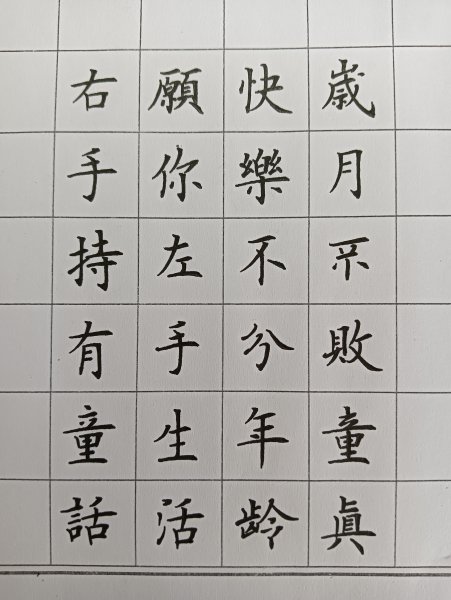 歲月不敗童眞
快樂不分年龄
願你左手生活
右手持有童話